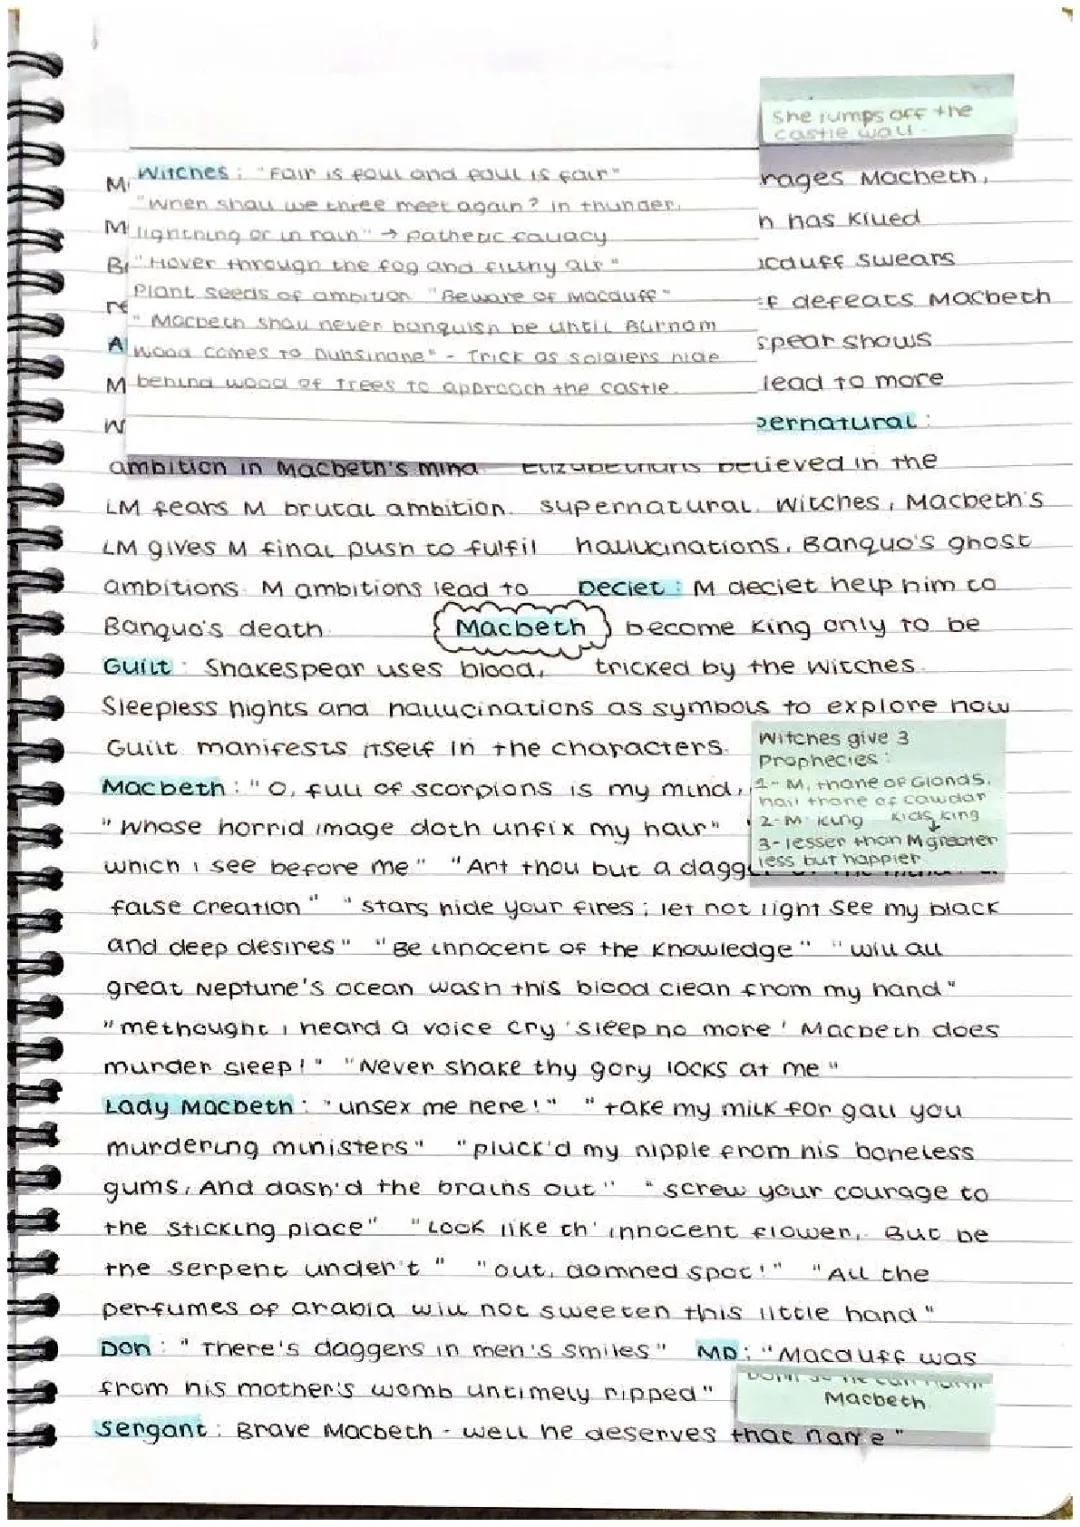 She jumps off the
castle wall.
Witches : "Fair is foul and foul is fair"
"When shall we three meet again? in thunder,
lightning or in rain" → pathetic fallacy
"Hover through the fog and filthy air"
Plant seeds of ambition "Beware of Macduff"
"Macbeth shall never banquish be until Burnam
Wood comes to Dunsinane" - Trick as soldiers hide
behind wood of trees to approach the castle.
rages Macbeth,
n has killed
acduff swears
f defeats Macbeth
spear shows
lead to more
pernatural :
ambition in Macbeth's mind Elizabethans believed in the
LM fears M brutal ambition. supernatural. Witches, Macbeth's
LM gives M final push to fulfil hallucinations, Banquo's ghost
ambitions. M ambitions lead to Deciet : M deciet help him to
Banquo's death. Macbeth become King only to be
Guilt : Shakespear uses blood, tricked by the witches.
Sleepless nights and hallucinations as symbols to explore how
Guilt manifests itself in the characters.
Witches give 3
Prophecies :
1- M, thane of Glamds,
hail thane of cawdor
2- M king kids king
3- lesser than M greater
less but happier
Macbeth : "O, full of scorpions is my mind,
"Whose horrid image doth unfix my hair"
which i see before me" "Art thou but a dagg
false creation" "stars hide your fires; let not light see my black
and deep desires" "Be innocent of the knowledge" "will all
great Neptune's ocean wash this blood clean from my hand"
"methought i heard a voice cry 'sleep no more' Macbeth does
murder sleep!" "Never shake thy gory locks at me"
Lady Macbeth : "unsex me here!" "take my milk for gall you
murdering ministers" "pluck'd my nipple from his boneless
gums, And dash'd the brains out" "screw your courage to
the sticking place" "Look like th' innocent flower, But be
the serpent under't" "out, damned spot!" "All the
perfumes of arabia will not sweeten this little hand"
Don : "There's daggers in men's smiles" MD : "Macduff was
from his mother's womb untimely ripped"
Macbeth
Sengant : Brave Macbeth - well he deserves that name"